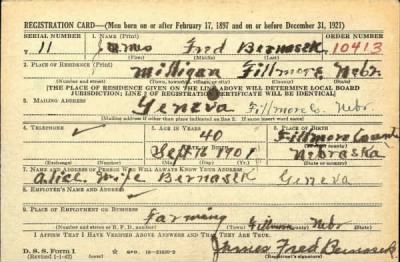 REGISTRATION CARD—(Men born on or after February 17, 1897 and on or before December 31, 1921)
SERIAL NUMBER 1. NAME (Print) ORDER NUMBER
11 James Fred Bernasek 10413
(First) (Middle) (Last)
2. PLACE OF RESIDENCE (Print)
Milligan Fillmore Nebr
(Number and street) (Town, township, village, or city) (County) (State)
[THE PLACE OF RESIDENCE GIVEN ON THE LINE ABOVE WILL DETERMINE LOCAL BOARD
JURISDICTION; LINE 2 OF REGISTRATION CERTIFICATE WILL BE IDENTICAL]
3. MAILING ADDRESS
Geneva Fillmore Co. Nebr.
[Mailing address if other than place indicated on line 2. If same insert word same]
4. TELEPHONE 5. AGE IN YEARS 6. PLACE OF BIRTH
✓ 40 Fillmore County
DATE OF BIRTH
Sept 16 1901 Nebraska
(Exchange) (Number) (Mo.) (Day) (Yr.) (State or country)
7. NAME AND ADDRESS OF PERSON WHO WILL ALWAYS KNOW YOUR ADDRESS
Alice Wife Bernasek Geneva
8. EMPLOYER'S NAME AND ADDRESS
✓
9. PLACE OF EMPLOYMENT OR BUSINESS
Farming Fillmore Nebr
(Number and street or R. F. D. number) (Town) (County) (State)
I AFFIRM THAT I HAVE VERIFIED ABOVE ANSWERS AND THAT THEY ARE TRUE.
D. S. S. Form 1
(Revised 1-1-42) (over) James Fred Bernasek
(Registrant's signature)